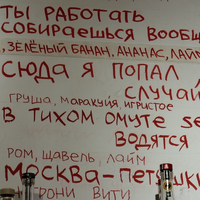 ТЫ РАБОТАТЬ
СОБИРАЕШЬСЯ ВООБЩ
, ЗЕЛЁНЫЙ БАНАН, АНАНАС, ЛАЙМ
СЮДА Я ПОПАЛ
СЛУЧАЙ
ГРУША, МАРАКУЙЯ, ИГРИСТОЕ
В ТИХОМ ОМУТЕ SE
ВОДЯТСЯ
РОМ, ЩАВЕЛЬ, ЛАЙМ
МОСКВА-ПЕТУШКИ
ТРОНИ ВИТИ